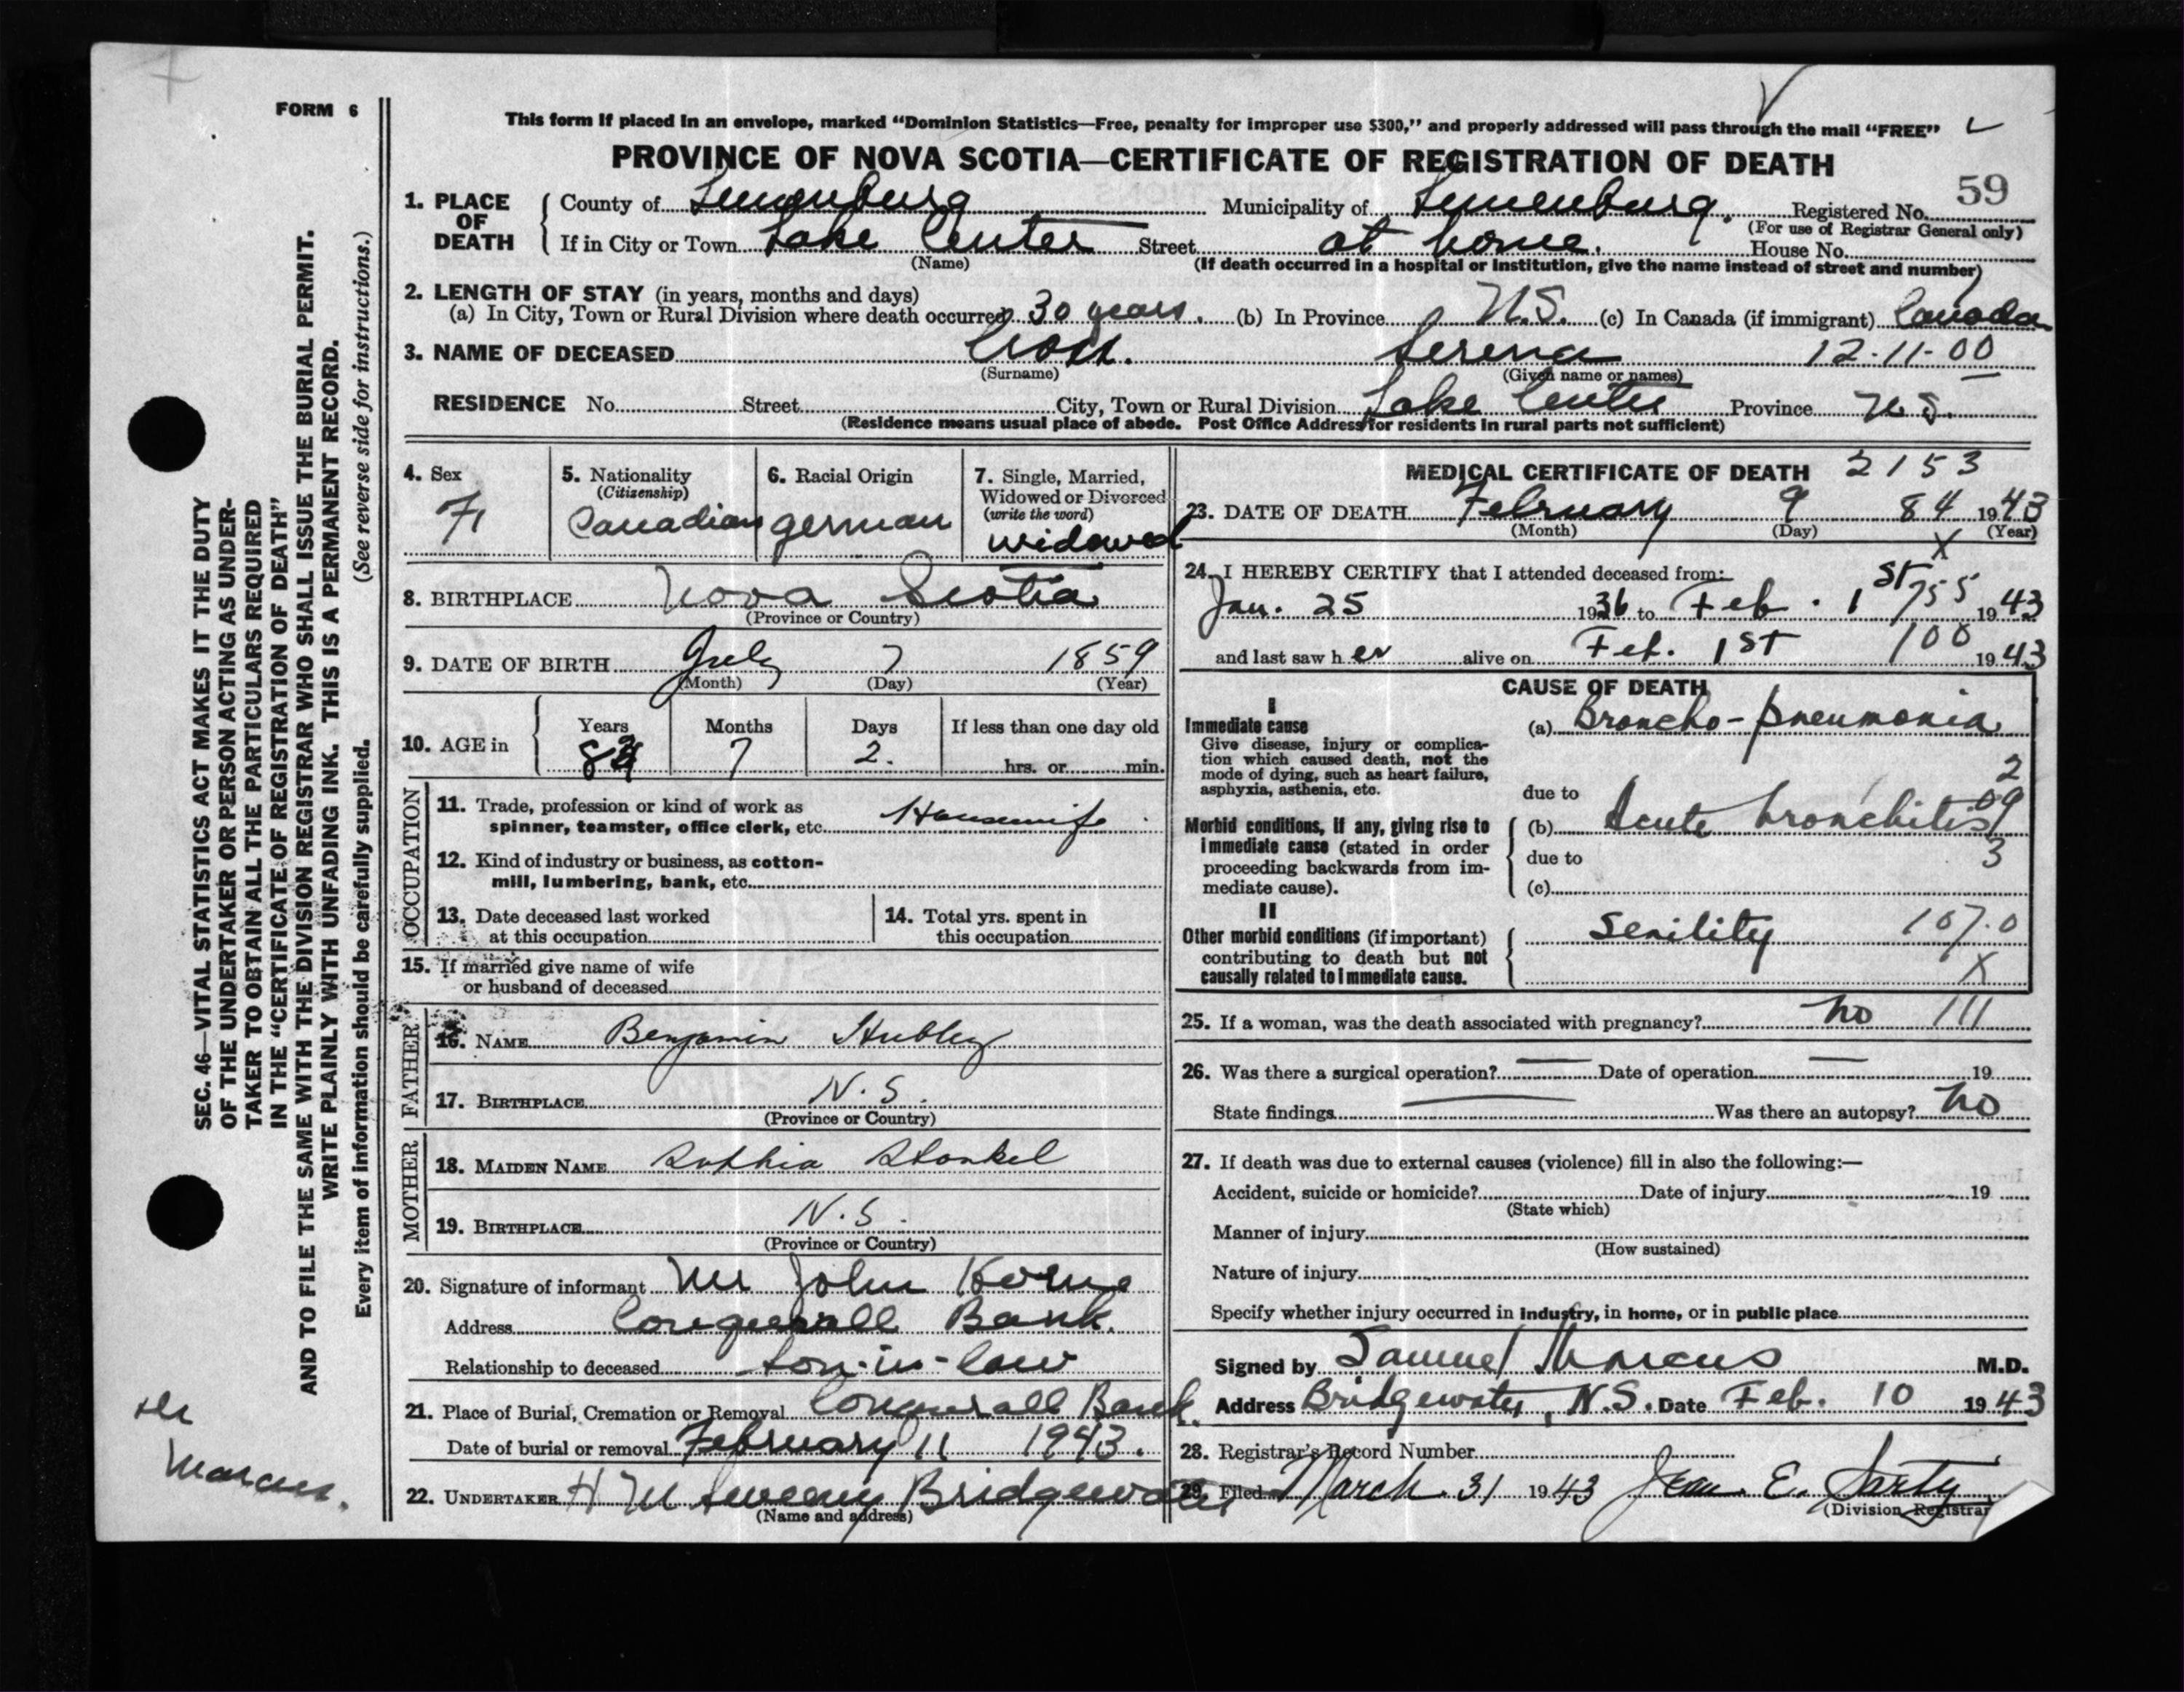 FORM 6
This form if placed in an envelope, marked "Dominion Statistics—Free, penalty for improper use $300," and properly addressed will pass through the mail "FREE"
PROVINCE OF NOVA SCOTIA—CERTIFICATE OF REGISTRATION OF DEATH
59
1. PLACE OF DEATH
County of Lunenburg Municipality of Lunenburg. Registered No.
(For use of Registrar General only)
If in City or Town Lake Center Street at home. House No.
(Name) (If death occurred in a hospital or institution, give the name instead of street and number)
2. LENGTH OF STAY (in years, months and days)
(a) In City, Town or Rural Division where death occurred 30 years. (b) In Province N.S. (c) In Canada (if immigrant) Canada
3. NAME OF DECEASED Serena 12-11-00
(Surname) (Given name or names)
RESIDENCE No. Street City, Town or Rural Division Lake Center Province N.S.
(Residence means usual place of abode. Post Office Address for residents in rural parts not sufficient)
4. Sex
F
5. Nationality
(Citizenship)
Canadian
6. Racial Origin
german
7. Single, Married,
Widowed or Divorced
(write the word)
widowed
8. BIRTHPLACE Nova Scotia
(Province or Country)
9. DATE OF BIRTH July 7 1859
(Month) (Day) (Year)
10. AGE in
Years Months Days If less than one day old
83 7 2. hrs. or min.
OCCUPATION
11. Trade, profession or kind of work as
spinner, teamster, office clerk, etc. Housewife
12. Kind of industry or business, as cotton-
mill, lumbering, bank, etc.
13. Date deceased last worked
at this occupation
14. Total yrs. spent in
this occupation
15. If married give name of wife
or husband of deceased
FATHER
16. NAME Benjamin Hubley
17. BIRTHPLACE N.S.
(Province or Country)
MOTHER
18. MAIDEN NAME Sophia
19. BIRTHPLACE N.S.
(Province or Country)
20. Signature of informant Mr John
Address Conquerall Bank.
Relationship to deceased son-in-law
21. Place of Burial, Cremation or Removal Conquerall Bank.
Date of burial or removal February 11 1943.
22. UNDERTAKER H M Sweeny Bridgewater
(Name and address)
MEDICAL CERTIFICATE OF DEATH 2153
23. DATE OF DEATH February 9 84 1943
(Month) (Day) (Year)
X
24. I HEREBY CERTIFY that I attended deceased from:
Jan. 25 1936 to Feb. 1st 755 1943
and last saw her alive on Feb. 1st 100 1943
CAUSE OF DEATH
I
Immediate cause
Give disease, injury or complica-
tion which caused death, not the
mode of dying, such as heart failure,
asphyxia, asthenia, etc.
(a) Broncho-pneumonia
2
due to
09
Morbid conditions, if any, giving rise to
immediate cause (stated in order
proceeding backwards from im-
mediate cause).
(b) Acute bronchitis
due to
3
(c)
II
Other morbid conditions (if important)
contributing to death but not
causally related to immediate cause.
Senility 107.0
X
25. If a woman, was the death associated with pregnancy? no 111
26. Was there a surgical operation? — Date of operation — 19
State findings — Was there an autopsy? no
27. If death was due to external causes (violence) fill in also the following:—
Accident, suicide or homicide? Date of injury 19
(State which)
Manner of injury
(How sustained)
Nature of injury
Specify whether injury occurred in industry, in home, or in public place
Signed by Samuel Marcus M.D.
Address Bridgewater, N.S. Date Feb. 10 1943
28. Registrar's Record Number
29. Filed March 31 1943 Jean E. Sarty
(Division Registrar
SEC. 46—VITAL STATISTICS ACT MAKES IT THE DUTY
OF THE UNDERTAKER OR PERSON ACTING AS UNDER-
TAKER TO OBTAIN ALL THE PARTICULARS REQUIRED
IN THE "CERTIFICATE OF REGISTRATION OF DEATH"
AND TO FILE THE SAME WITH THE DIVISION REGISTRAR WHO SHALL ISSUE THE BURIAL PERMIT.
WRITE PLAINLY WITH UNFADING INK. THIS IS A PERMANENT RECORD.
Every item of information should be carefully supplied. (See reverse side for instructions.)
Dr
Marcus.